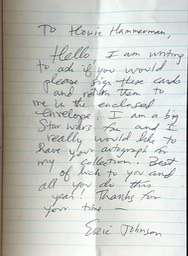 To Howie Hammerman,
Hello I am writing
to ask if you would
please sign these cards
and return them to
me in the enclosed
envelope. I am a big
Star Wars fan, and I
really would like to
have your autograph in
my collection. Best
of luck to you and
all you do this
year! Thanks for
your time —
Eric Johnson